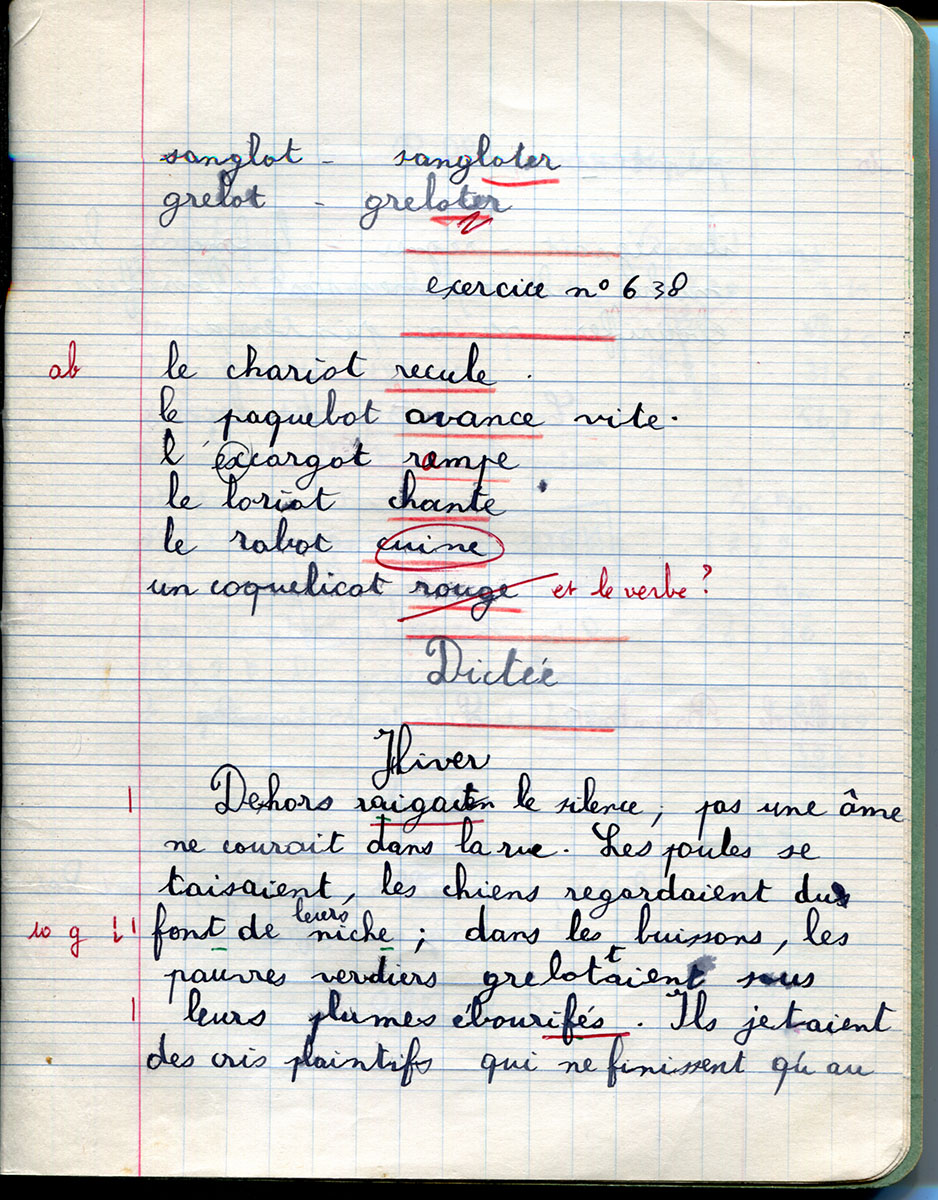 sanglot - sangloter
grelot - greloter
exercice n° 638
ab le chariot recule.
le paquebot avance vite.
l'excargot rampe
le loriot chante
le robot cuine
un coquelicot rouge et le verbe ?
Dictée
Hiver
Dehors raigacten le silence, pas une âme
ne courait dans la rue. Les poules se
taisaient, les chiens regardaient du
leurs
10 g font de niche ; dans les buissons, les
pauvres verdiers grelottaient sous
leurs plumes ébourifés. Ils jetaient
des cris plaintifs qui ne finissent qu'au